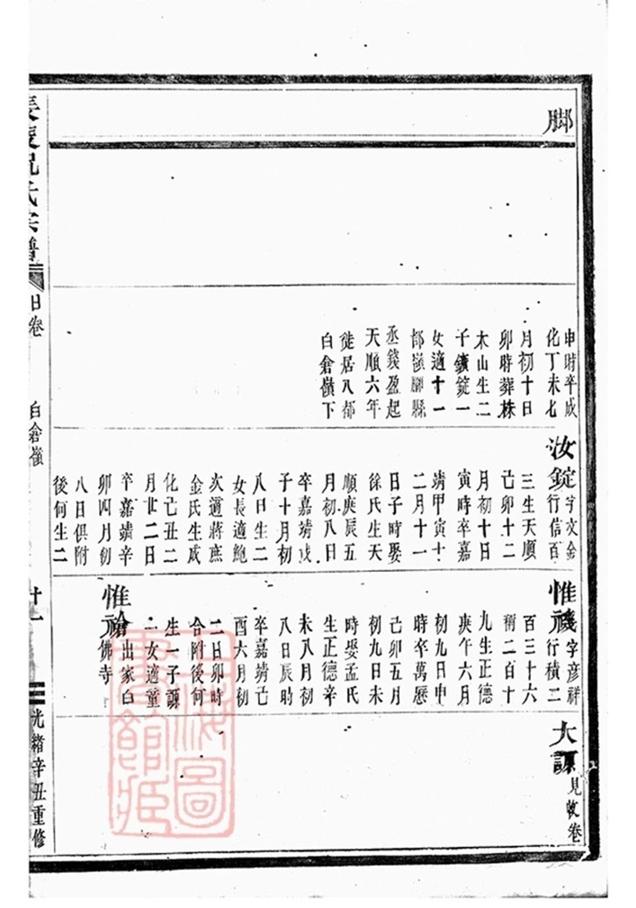 脚
申時卒成
化丁未七
月初十日
卯時葬株
木山生二
子鑌錠一
女適十一
都嶺腳縣
丞錢盈起
天順六年
徙居八都
白倉嶺下
汝錠字文金
行信百
三生天順
己卯十二
月初十日
寅時卒嘉
靖甲寅十
二月十一
日子時娶
徐氏生天
順庚辰五
月初八日
卒嘉靖戊
子十月初
八日生二
女長適鮑
次適蔣庶
金氏生成
化己丑二
月廿二日
卒嘉靖辛
卯四月初
八日俱附
後何生二
惟禨字彦祥
行積二
百三十六
稱二百十
九生正德
庚午六月
初九日申
時卒萬歷
己卯五月
初九日未
時娶孟氏
生正德辛
未八月初
八日辰時
卒嘉靖己
酉六月初
二日卯時
合附後何
生一子謙
一女適童
惟禬出家白
佛寺
大謙見收卷
長慶祝氏宗譜
日卷
白倉嶺
廿一
光緒辛丑重修